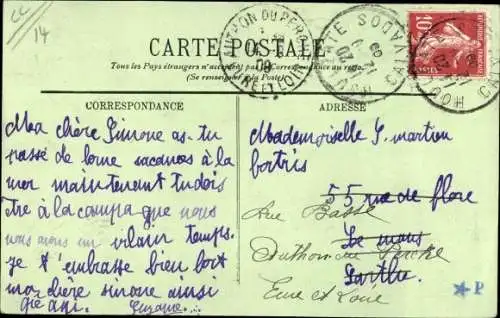 CC
14
CARTE POSTALE
Tous les Pays étrangers n'acceptent pas la Correspondance au recto.
(Se renseigner à la Poste)
CORRESPONDANCE
Ma chère Simone as-tu
passé de bonne vacances à la
mer maintenent tu dois
être à la campagne nous
nous avons un vilain temps.
Je t'embrasse bien fort
ma chère simone ainsi
Suzanne...
ADRESSE
Mademoiselle S. martin
55 rue de flore
Rue Basse
Le mans
Authon du Perche
Sarthe
Eure et Loir
10
HOULGATE CALVADOS
AUTHON DU PERCHE
EURE ET LOIR
09